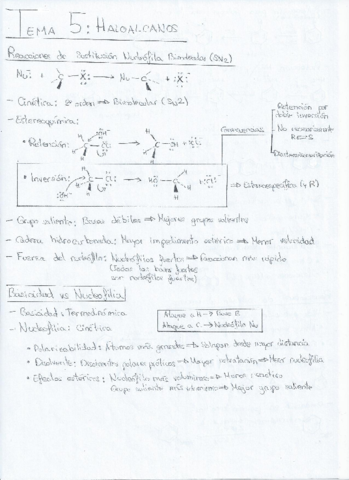 TEMA 5: HALOALCANOS
Reacciones de Sustitución Nucleófila Bimolecular (SN2)
Nu:⁻ + C–X: → Nu–C + :X:⁻
– Cinética: 2º orden ⇒ Bimolecular (SN2)
– Estereoquímica:
• Retención:
Consecuencias
Retención por
doble inversión
No necesariamente
R⇌S
• Inversión:
⇒ Estereoespecífica (≠R)
– Grupo saliente: Bases débiles ⇒ Mejores grupos salientes
– Cadena hidrocarbonada: Mayor impedimento estérico ⇒ Menor velocidad
– Fuerza del nucleófilo: Nucleófilos fuertes ⇒ Reaccionan más rápido
(Todas las bases fuertes
son nucleófilos fuertes)
Basicidad vs Nucleofilia
– Basicidad: Termodinámica
– Nucleofilia: Cinética
Ataque a H → Base B
Ataque a C → Nucleófilo Nu
• Polarizabilidad: Átomos más grandes ⇒ Solapan desde mayor distancia
• Disolvente: Disolventes polares próticos ⇒ Mayor solvatación ⇒ Menor nucleofilia
• Efectos estéricos: Nucleófilo más voluminoso ⇒ Menos reactivo
Grupo saliente más voluminoso ⇒ Mejor grupo saliente